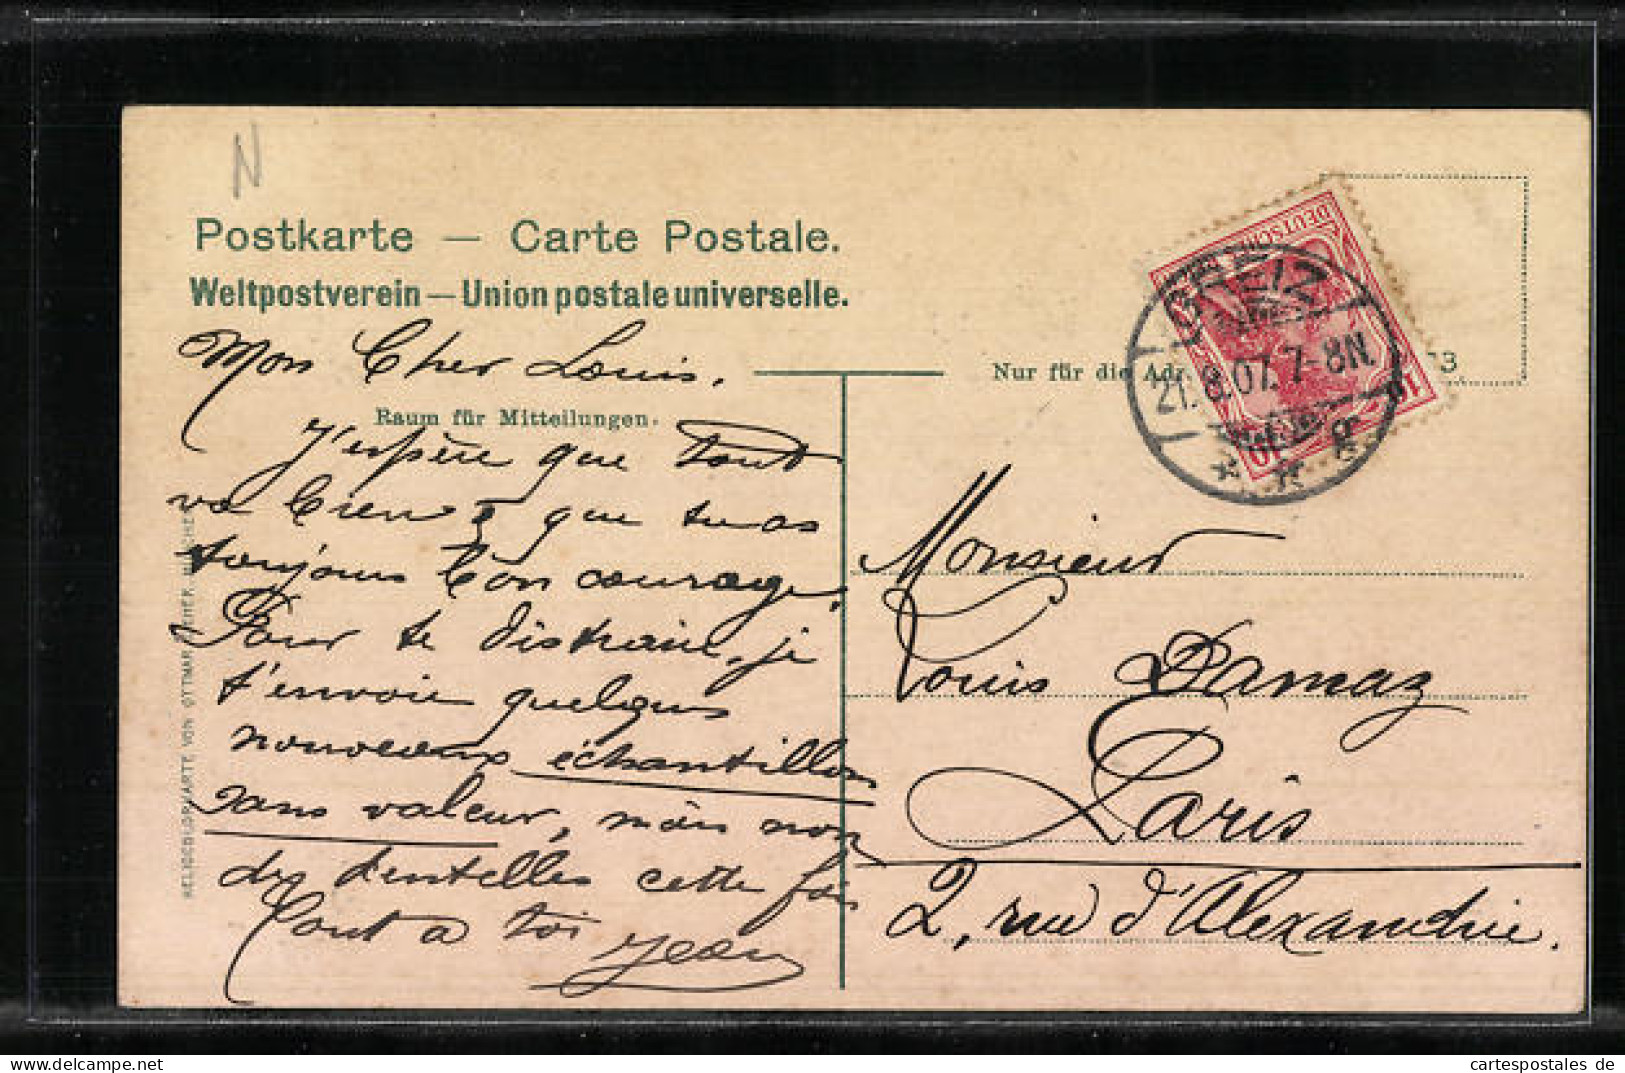 N
Postkarte — Carte Postale.
Weltpostverein — Union postale universelle.
Mon Cher Louis.
Raum für Mitteilungen.
J'espère que tout
va bien & que tu as
toujours bon courage.
Pour te distraire, je
t'envoie quelques
nouveaux échantillons
sans valeur, mais non
des dentelles cette fois
Tout à toi Jean
HELIOCOLORKARTE VON OTTMAR ZIEHER, MÜNCHEN
DEUTSCHES
10 10
GREIZ
21.8.07.7-8N.
* * a
Nur für die Adr
3.
Monsieur
Louis Damaz
Paris
2, rue d'Alexandrie.
cartespostales de
cartespostales de